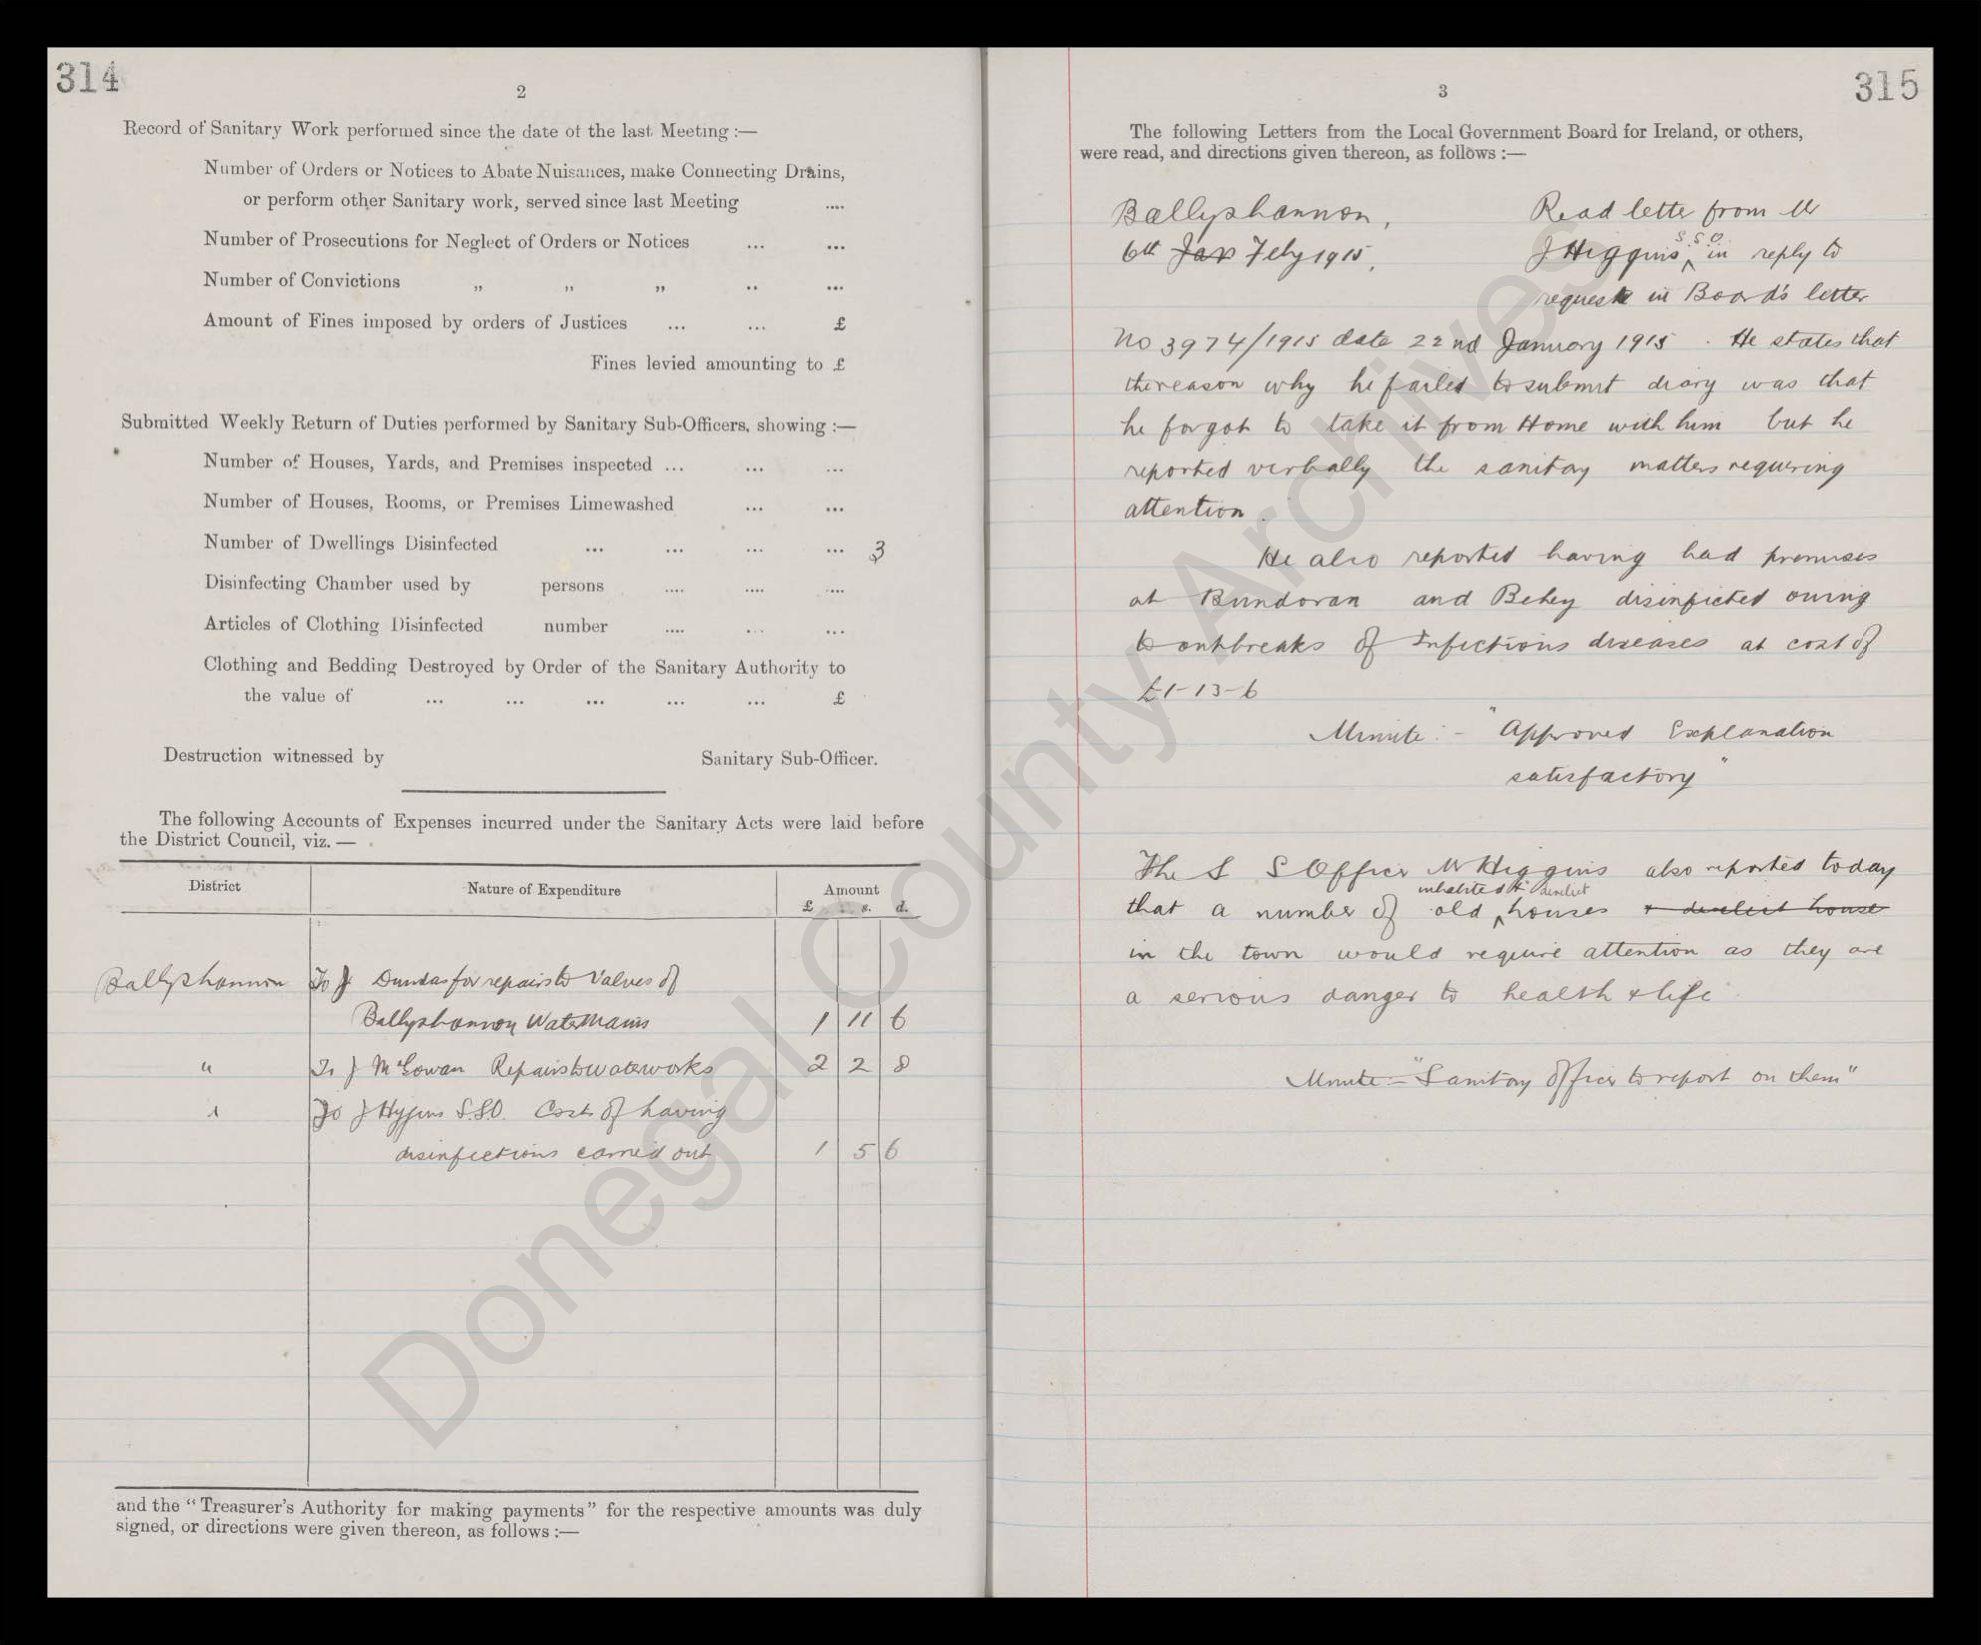 314
2
Record of Sanitary Work performed since the date of the last Meeting :—
Number of Orders or Notices to Abate Nuisances, make Connecting Drains,
or perform other Sanitary work, served since last Meeting ....
Number of Prosecutions for Neglect of Orders or Notices ... ...
Number of Convictions „ „ „ .. ...
Amount of Fines imposed by orders of Justices ... ... £
Fines levied amounting to £
Submitted Weekly Return of Duties performed by Sanitary Sub-Officers, showing :—
Number of Houses, Yards, and Premises inspected ... ... ...
Number of Houses, Rooms, or Premises Limewashed ... ...
Number of Dwellings Disinfected ... ... ... ... 3
Disinfecting Chamber used by persons .... .... ....
Articles of Clothing Disinfected number .... ... ...
Clothing and Bedding Destroyed by Order of the Sanitary Authority to
the value of ... ... ... ... ... £
Destruction witnessed by Sanitary Sub-Officer.
The following Accounts of Expenses incurred under the Sanitary Acts were laid before
the District Council, viz. —
District Nature of Expenditure Amount
£ s. d.
Ballyshannon To J Dundas for repairs to Valves of
Ballyshannon Water Mains 1 11 6
" To J McGowan Repairs to waterworks 2 2 8
" To J Higgins S.S.O. Cost of having
disinfections carried out 1 5 6
and the "Treasurer's Authority for making payments" for the respective amounts was duly
signed, or directions were given thereon, as follows :—
315
3
The following Letters from the Local Government Board for Ireland, or others,
were read, and directions given thereon, as follows :—
Ballyshannon, Read letter from Mr
6th Jan Feby 1915, J Higgins S S O in reply to
request in Board's letter
No 3974/1915 date 22nd January 1915. He states that
the reason why he failed to submit diary was that
he forgot to take it from Home with him but he
reported verbally the sanitay matters requiring
attention.
He also reported having had premises
at Bundoran and Behey disinfected owing
to outbreaks of Infectious diseases at cost of
£1-13-6
Minute:- "Approved Explanation
satisfactory"
The S S Officer Mr Higgins also reported today
that a number of old inhabited & derelict houses & derelict house
in the town would require attention as they are
a serious danger to health & life.
Minute:- "Sanitay Officer to report on them"
Donegal County Archives